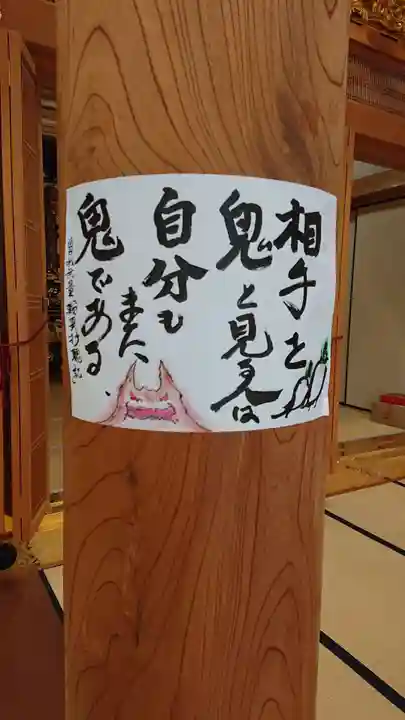 相手を
鬼と見る人は
自分も
また、
鬼である、